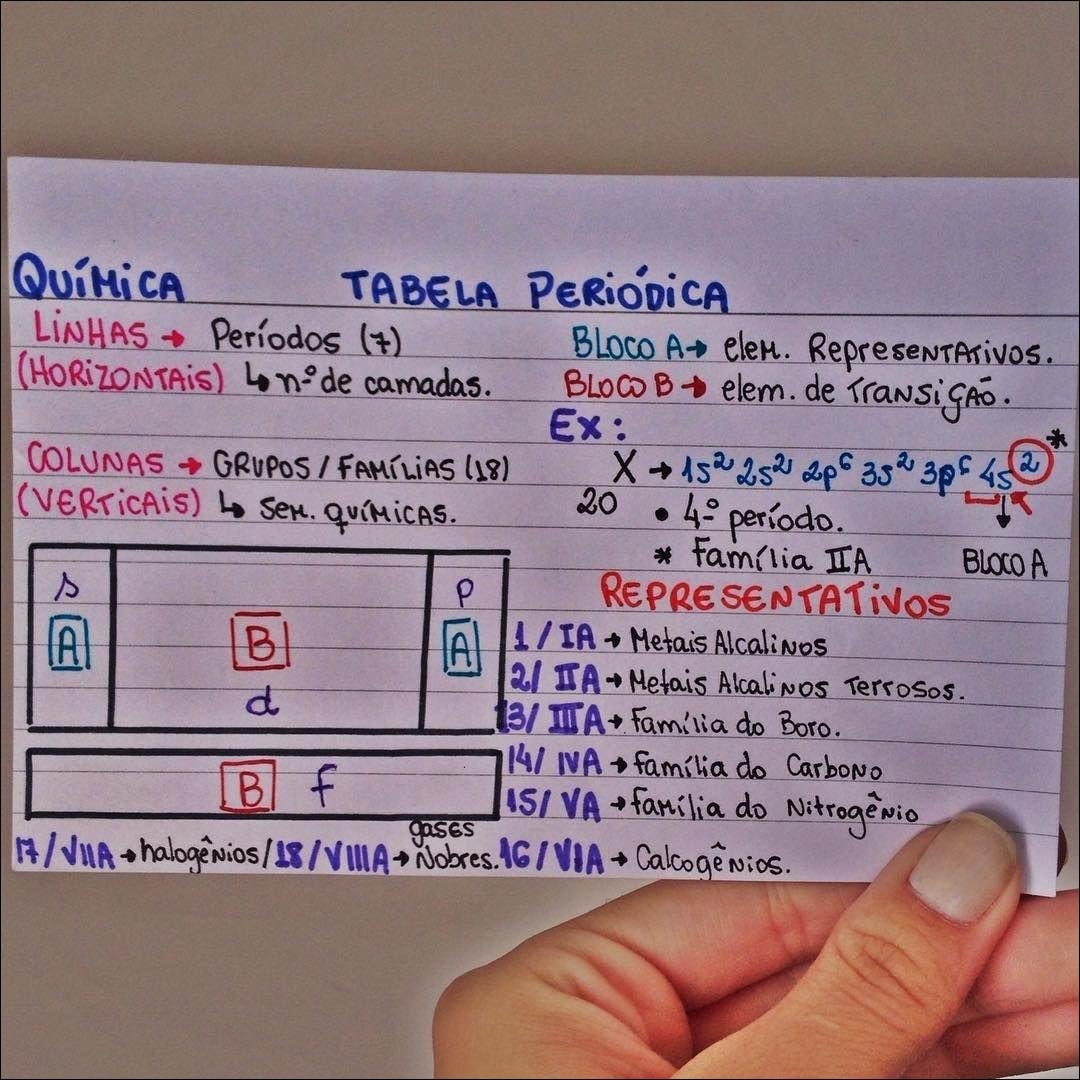 QUÍMICA TABELA PERIÓDICA
LINHAS → Períodos (7)
(HORIZONTAIS) ↳ nº de camadas.
COLUNAS → GRUPOS / FAMÍLIAS (18)
(VERTICAIS) ↳ SEM. QUÍMICAS.
BLOCO A → elem. Representativos.
BLOCO B → elem. de Transição.
Ex:
X → 1s² 2s² 2p⁶ 3s² 3p⁶ 4s² *
20
• 4º período.
* Família IIA
BLOCO A
s
A
B
d
p
A
B f
REPRESENTATIVOS
1 / IA → Metais Alcalinos
2/ IIA → Metais Alcalinos Terrosos.
13/ IIIA → Família do Boro.
14/ IVA → Família do Carbono
15/ VA → família do Nitrogênio
16/VIA → Calcogênios.
17/VIIA → halogênios/18/VIIIA → gases Nobres.